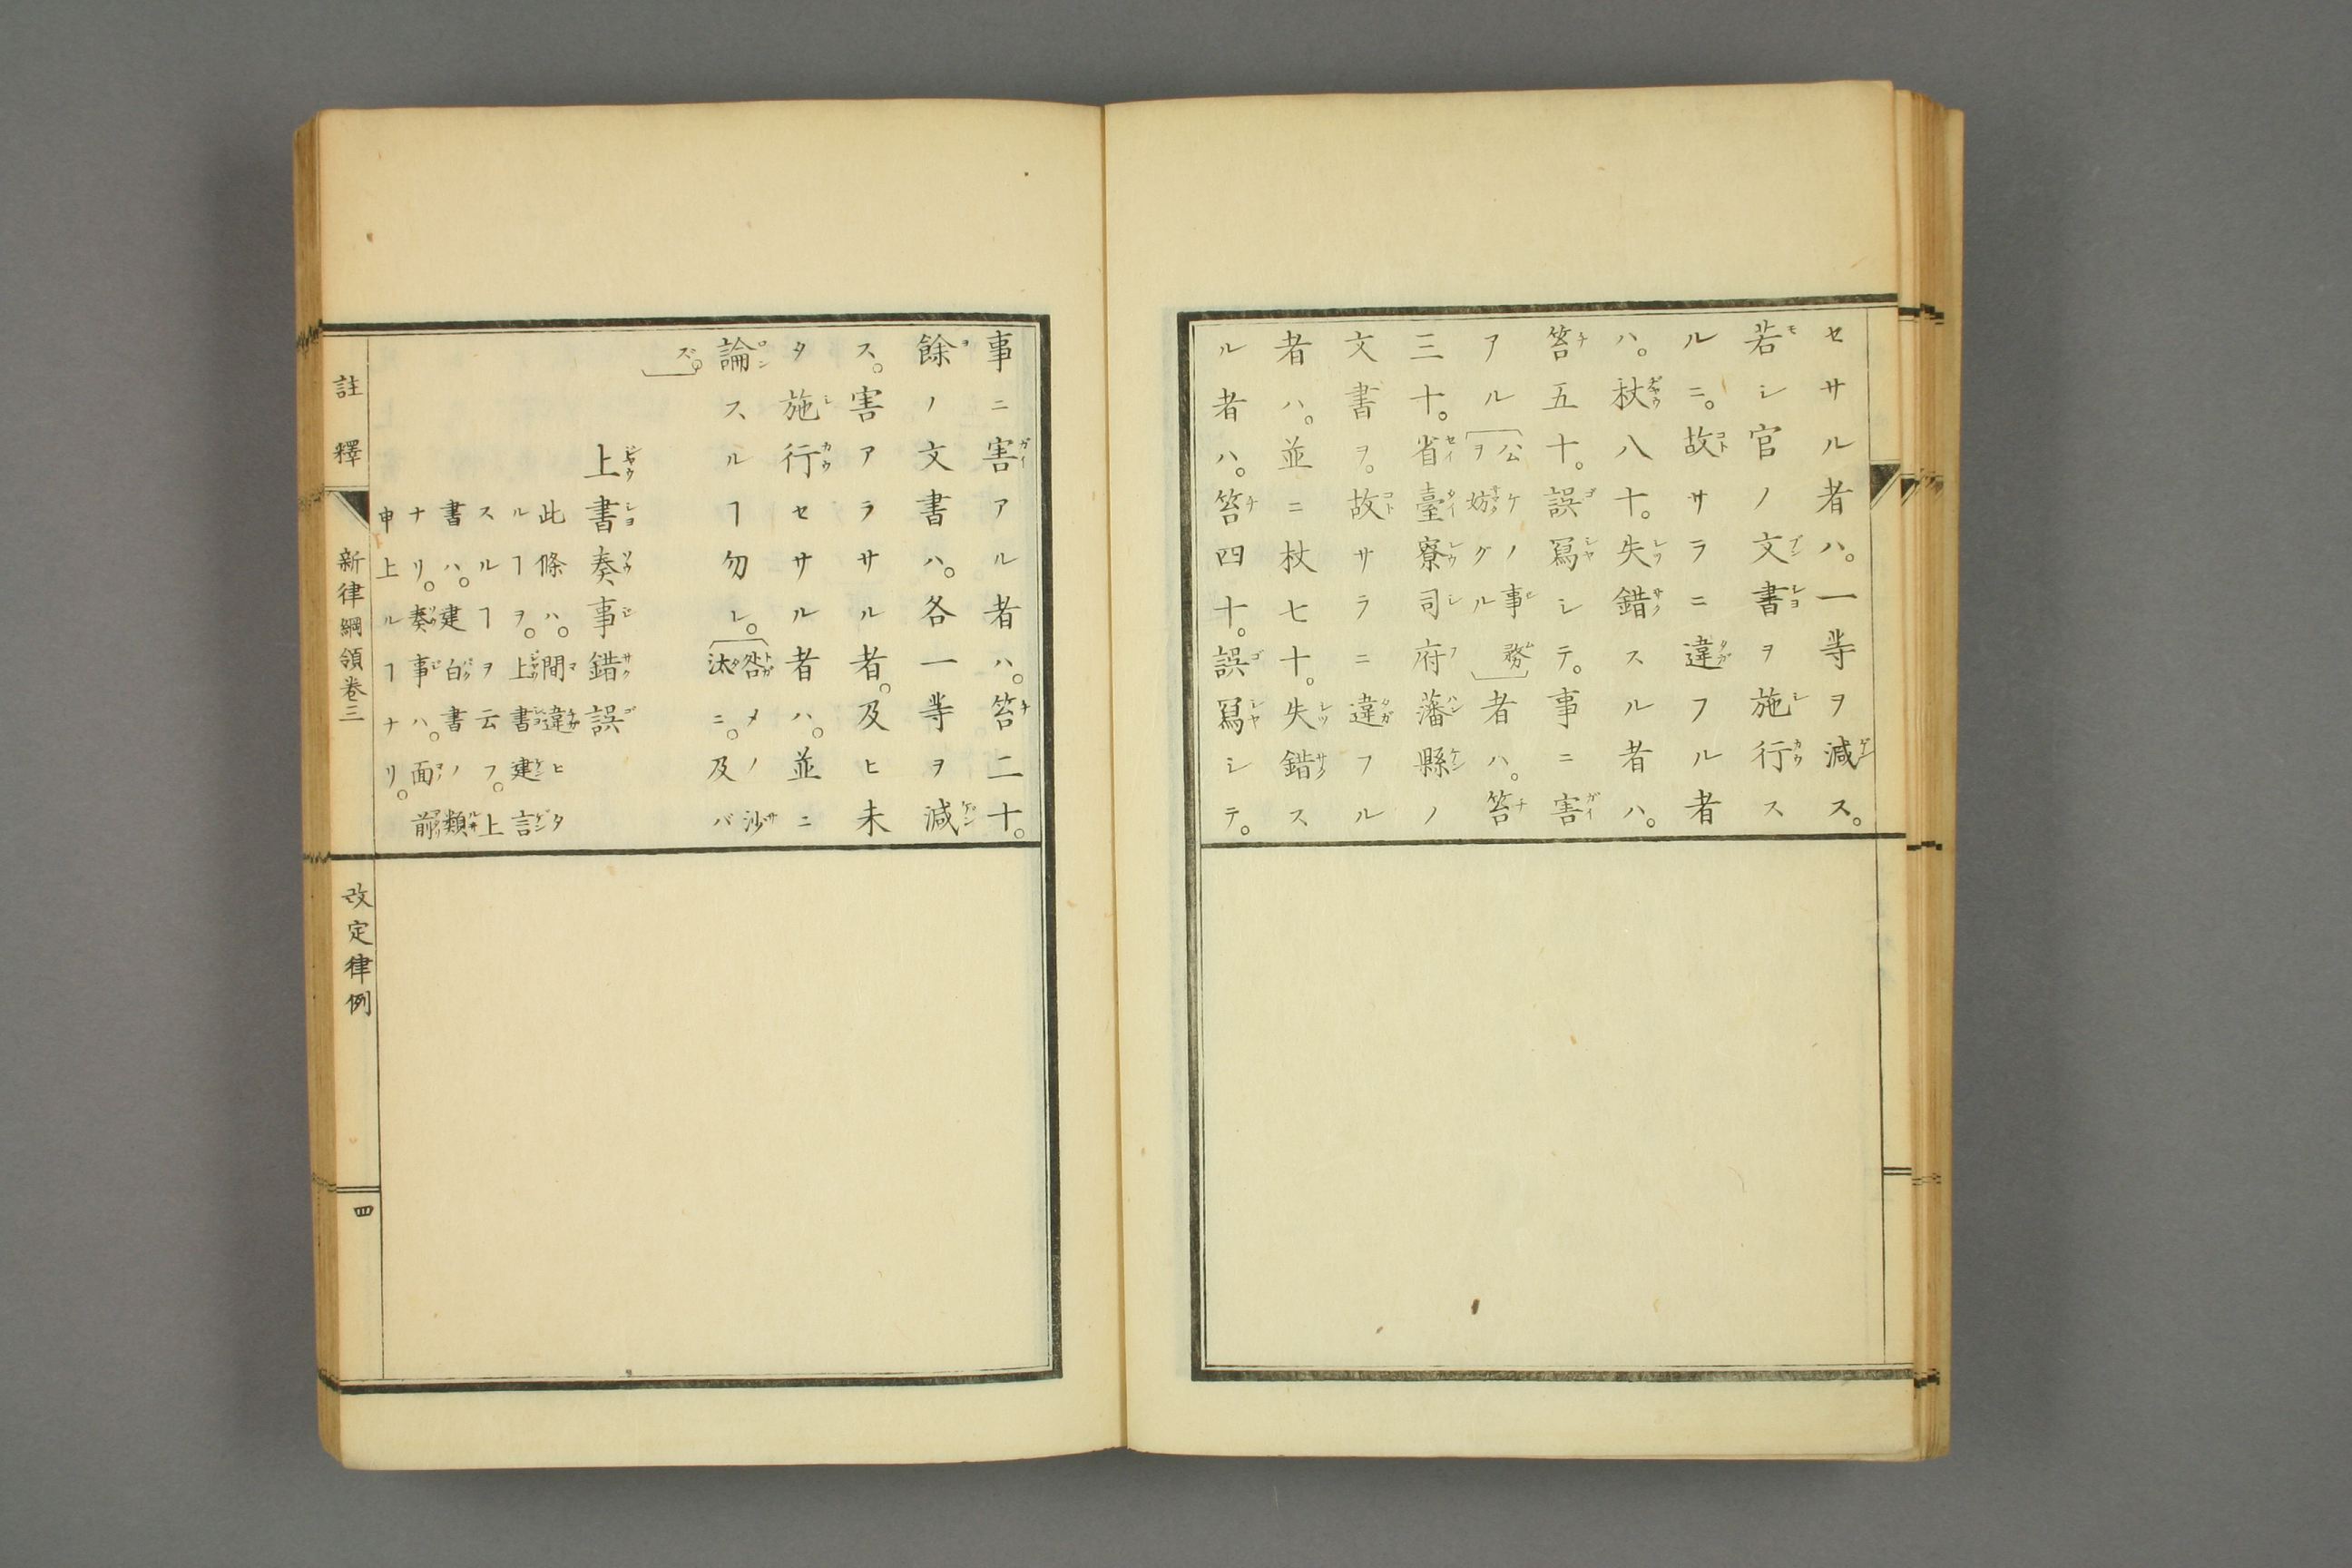 セサル者ハ。一等ヲ減ス。
若シ官ノ文書ヲ施行ス
ルニ。故サラニ違フル者
ハ。杖八十。失錯スル者ハ。
笞五十。誤寫シテ。事ニ害
アル〔公ケノ事務ヲ妨グル〕者ハ。笞
三十。省臺寮司府藩縣ノ
文書ヲ。故サラニ違フル
者ハ。並ニ杖七十。失錯ス
ル者ハ。笞四十。誤寫シテ。
事ニ害アル者ハ。笞二十。
餘ノ文書ハ。各一等ヲ減
ス。害アラサル者。及ヒ未
タ施行セサル者ハ。並ニ
論スルヿ勿レ。〔咎メノ沙汰ニ。及バ
ズ。〕
上書奏事錯誤
此條ハ。間違ヒタ
ルヿヲ。上書建言
スルヿヲ云フ。上
書ハ。建白書ノ類
ナリ。奏事ハ。面前
申上ルヿナリ。
註釋 新律綱領卷三 改定律例 四